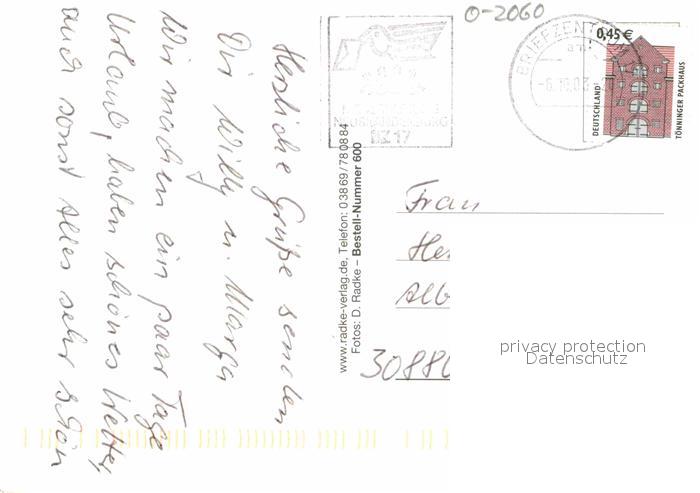 Herzliche Grüße senden
Dir Willy u. Marga
Wir machen ein paar Tage
Urlaub, haben schönes Wetter,
auch sonst alles sehr schön
www.radke-verlag.de, Telefon: 03869/780884
Fotos: D. Radke – Bestell-Nummer 600
0-2060
NEUBRANDENBURG
BZ 17
BRIEFZENTRUM
-6.10.03-
0,45 €
DEUTSCHLAND
TÖNNINGER PACKHAUS
Frau
30880
privacy protection
Datenschutz